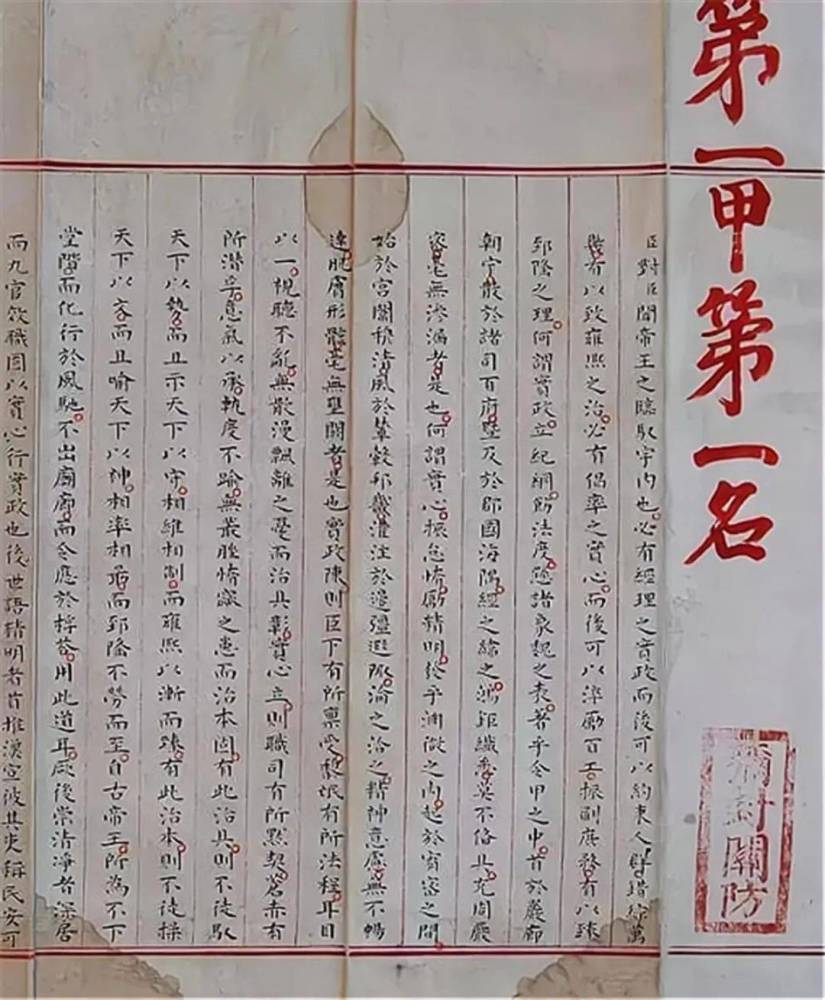 第一甲第一名
彌封關防
臣對臣聞帝王之臨馭宇內也必有經理之實政而後可以約束人群錯綜萬
機有以致雍熙之治必有倡率之實心而後可以淬勵百工振刷庶務有以臻
郅隆之理何謂實政立紀綱飭法度懸諸象魏之表著乎令甲之中首於巖廊
朝宁散於諸司百府暨及於郡國海隅經之緯之鴻鉅纖悉莫不備具充周嚴
密毫無滲漏者是也何謂實心振怠惰勵精明發乎淵微之內起於宥密之間
始於宮闈穆清風於輦轂邦畿灌注於邊疆遐陬淪之洽之精神意慮無不暢
達肌膚形骸毫無壅閼者是也實政陳則臣下有所稟受黎氓有所法程耳目
以一視聽不亂無散漫飄離之憂而治具彰實心立則職司有所默契蒼赤有
所潛孚意氣以承軌度不踰無叢脞惰窳之患而治本固有此治具則不徒馭
天下以勢而且示天下以守相維相制而雍熙以漸而臻有此治本則不徒操
天下以文而且喻天下以神相率相勖而郅隆不勞而至自古帝王所為不下
堂階而化行於風馳不出廟廊而令應於桴答用此道耳厥後崇清凈者深居
而九官效職固以實心行實政也後世語精明者首推漢宣彼其吏稱民安可